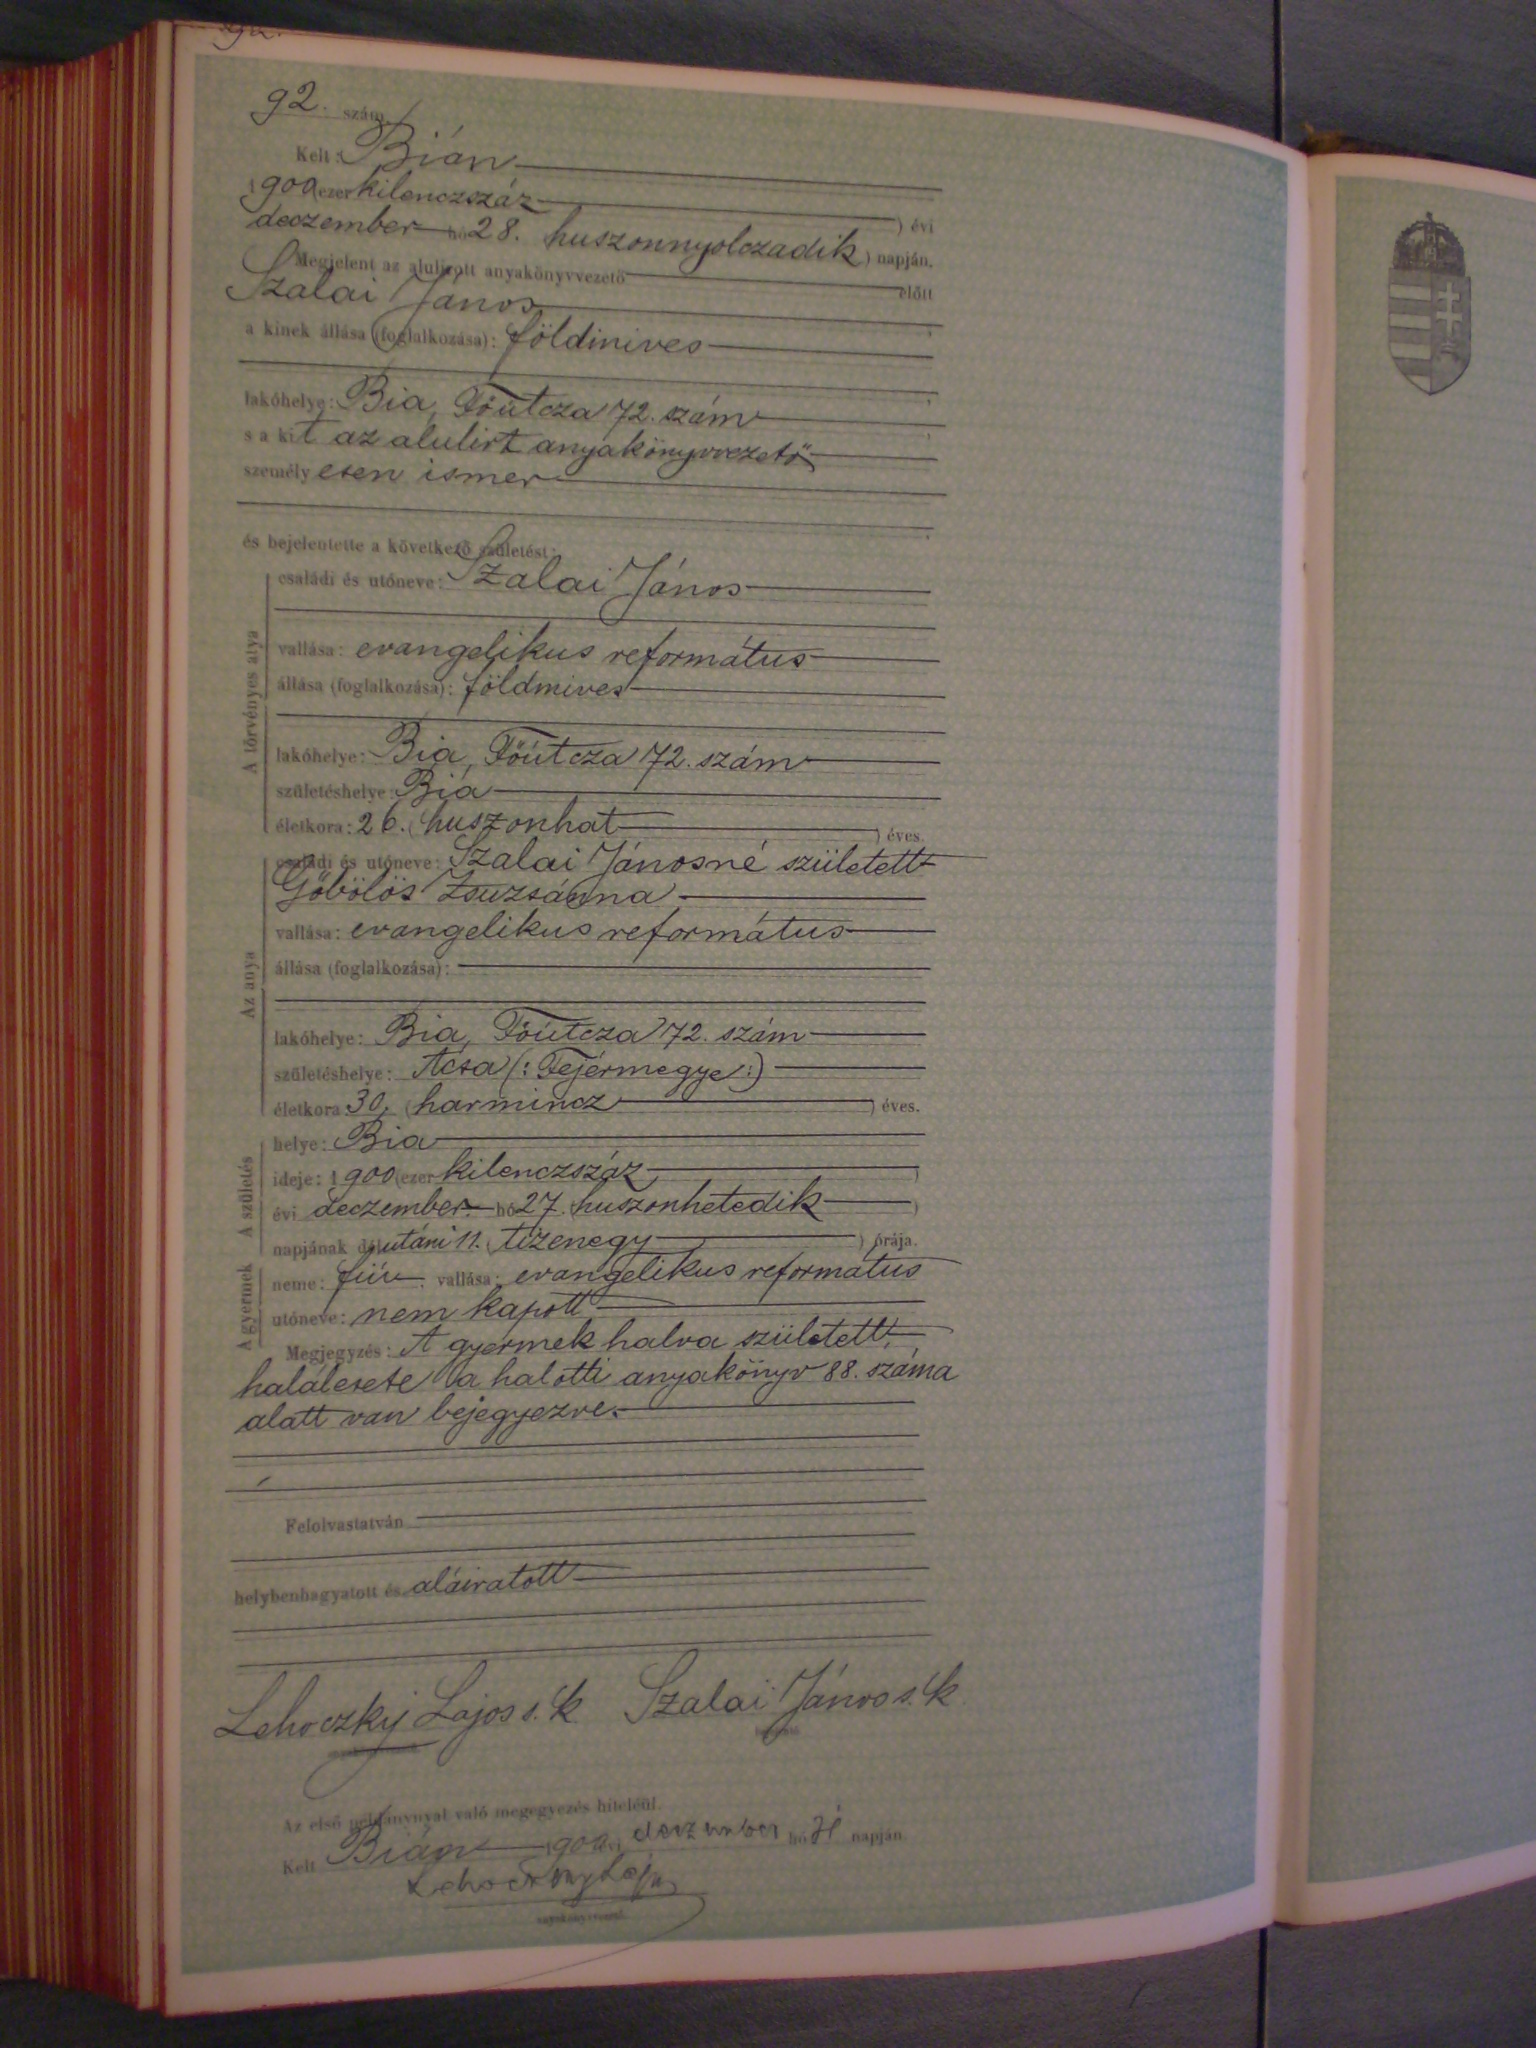 92. szám.
Kelt: Bián
1900 (ezer kilenczszáz ) évi
deczember hó 28. huszonnyolczadik ) napján.
Megjelent az alulirott anyakönyvvezető előtt
Szalai János
a kinek állása (foglalkozása): földmives
lakóhelye: Bia, Főútcza 72. szám
s a kit az alulirt anyakönyvvezető
személyesen ismer
és bejelentette a következő születést:
A törvényes atya
családi és utóneve: Szalai János
vallása: evangelikus református
állása (foglalkozása): földmives
lakóhelye: Bia, Főútcza 72. szám
születéshelye: Bia
életkora: 26. (huszonhat ) éves.
Az anya
családi és utóneve: Szalai Jánosné született
Göbölös Zsuzsánna
vallása: evangelikus református
állása (foglalkozása):
lakóhelye: Bia, Főútcza 72. szám
születéshelye: Acsa (: Fejérmegye :)
életkora 30, (harmincz ) éves.
A születés
helye: Bia
ideje: 1900 (ezer kilenczszáz )
évi deczember hó 27. (huszonhetedik )
napjának délutáni 11. (tizenegy ) órája.
A gyermek
neme: fiú vallása: evangelikus református
utóneve: nem kapott
Megjegyzés: A gyermek halva született,
halálesete a halotti anyakönyv 88. száma
alatt van bejegyezve.
Felolvastatván
helybenhagyatott és aláiratott
Lehoczky Lajos s. k. Szalai János s. k.
Az első példánynyal való megegyezés hiteléül.
Kelt Bián 1900 évi deczember hó 31 napján.
Lehoczky Lajos
anyakönyvvezető